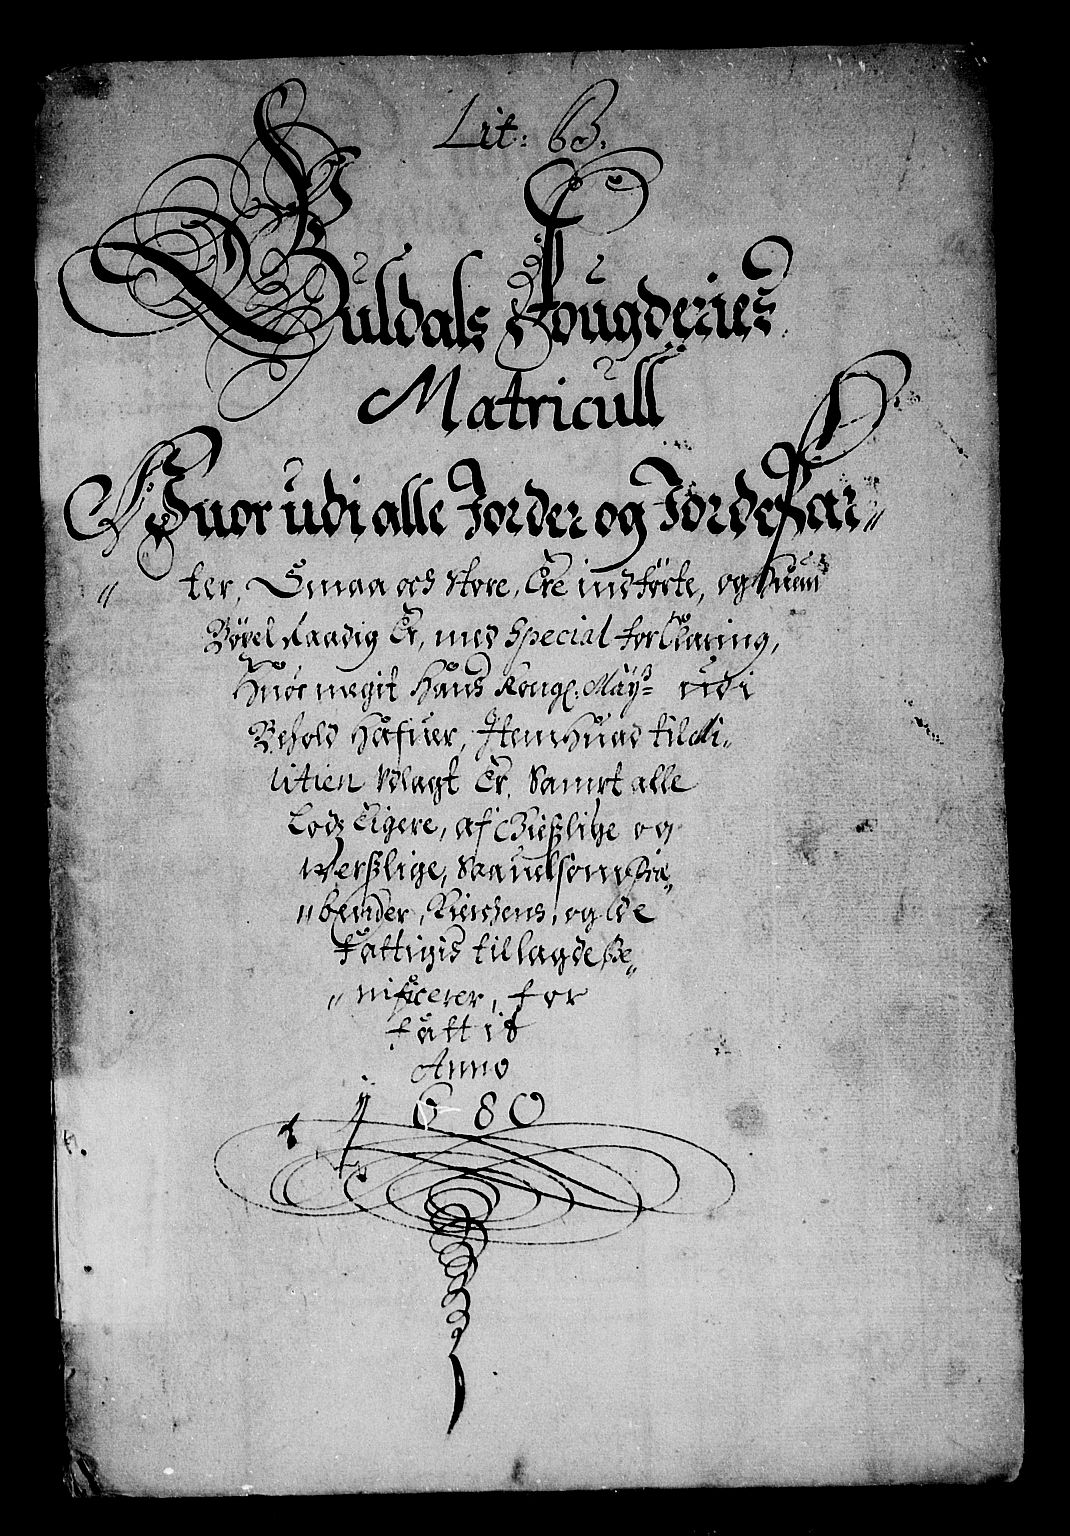 Lit: B.
Guldals Fougderies
Matricull
Huor udi alle Jorder og Jordepar„
„ter, Smaa och store, Ere indførte, og huem
Bøxel Raadig Er, med Special forklaring,
Huor megit Hans Kongl: Mayᵗˢ udi
Behold Hafuer, Item Huad til Mi„
litien Udlagt Er, Sampt alle
Lodz Eigere, af Giestlige og
Verslige, Saauelsom Præ„
„bender, Kirchens, og de
fattigis tillagde Be„
„nificerer, for
fattit
Anno
1680